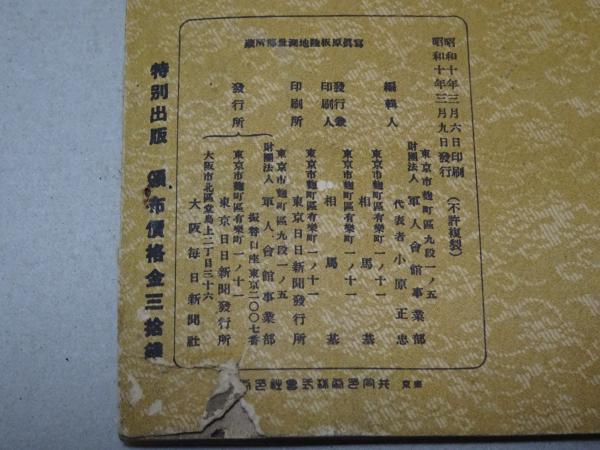 昭和十年三月六日印刷
昭和十年三月九日發行
(不許複製)
東京市麴町區九段一ノ五
財團法人 軍人會館事業部
代表者 小原正忠
編輯人
東京市麴町區有樂町一ノ十一
相馬基
發行兼印刷人
東京市麴町區有樂町一ノ十一
相馬基
印刷所
東京市麴町區有樂町一ノ十一
東京日日新聞發行所
發行所
東京市麴町區九段一ノ五
財團法人 軍人會館事業部
振替口座東京二〇〇七番
東京市麴町區有樂町一ノ十一
東京日日新聞發行所
大阪市北區堂島上二丁目三十六
大阪每日新聞社
寫眞原板陸地測量部所藏
特別出版 頒布價格金三拾錢
東京